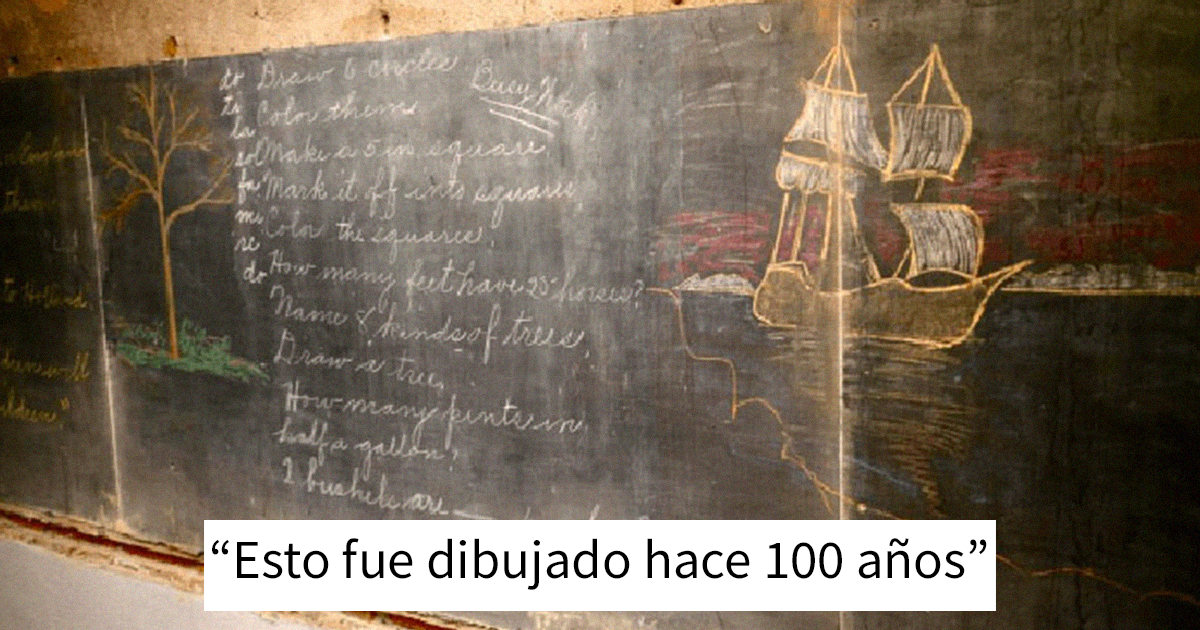 to Holland.
children."
do
ti
la
sol
fa
mi
re
do
Draw 6 circles
Busy Work
Color them
Make a 5 in square.
Mark it off into squares
Color the squares.
How many feet have 25 horses?
Name 8 kinds of trees.
Draw a tree.
How many pints in
half a gallon?
2 bushels are
“Esto fue dibujado hace 100 años”